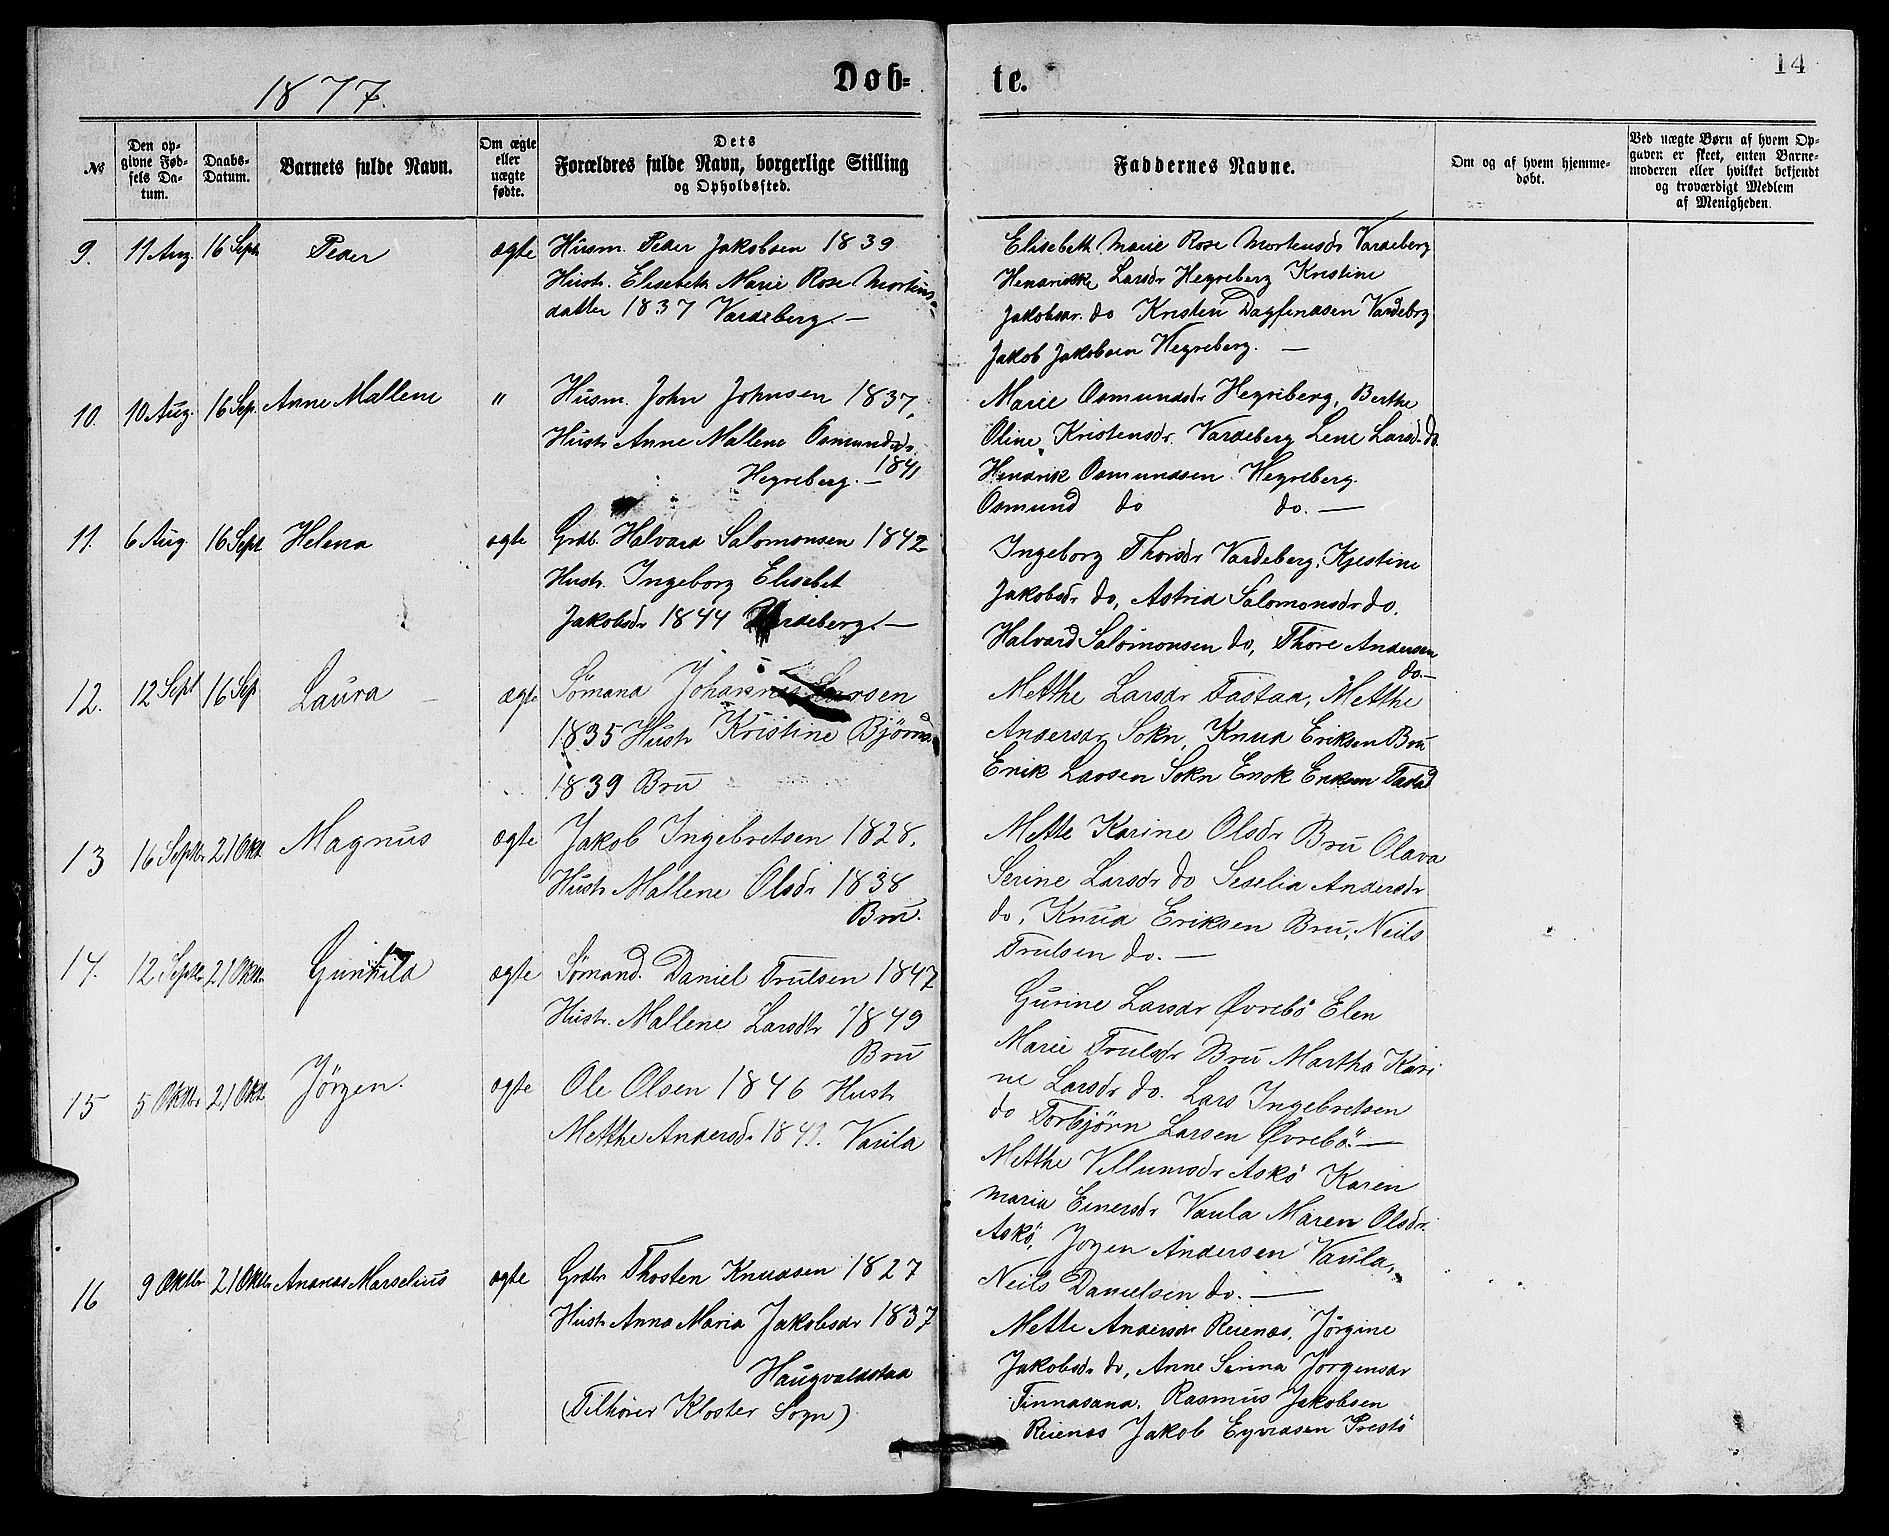 1877.
Døb-
te.
14
№
Den op-
givne Fød-
sels Da-
tum.
Daabs-
Datum.
Barnets fulde Navn.
Om ægte
eller
uægte
fødte.
Dets
Forældres fulde Navn, borgerlige Stilling
og Opholdssted.
Faddernes Navne.
Om og af hvem hjemme-
døbt.
Ved uægte Børn af hvem Op-
gaven er skeet, enten Barne-
moderen eller hvilket bekjendt
og troværdigt Medlem
af Menigheden.
9. 11 Aug. 16 Sept. Peder ægte Husm. Peder Jakobsen 1839
Hustr. Elisebeth Marie Rose Mortens-
datter 1837 Vardeberg. —
Elisebeth Marie Rose Mortensdr Vardeberg
Hendrickke Larsdr Hegreberg Kristine
Jakobsdr. do Kristen Dagfindsen Vardebrg
Jakob Jakobsen Hegreberg. —
10. 10 Aug. 16 Sep. Anne Mallene " Husm. John Johnsen 1837,
Hustr Anne Mallene Osmundsdr
Hegreberg. — 1841
Marie Osmundsdr Hegreberg, Berthe
Oline Kristensdr. Vardeberg Lene Larsd. do.
Hendrik Osmundsen Hegreberg.
Osmund do do. —
11. 6 Aug. 16 Sept Helena ægte Grdb. Halvard Salomonsen 1842
Hustr. Ingeborg Elisebet
Jakobsdr 1844 Vardeberg. —
Ingeborg Thorsdr Vardeberg, Kjestine
Jakobsdr do, Astrid Salomonsdr do.
Halvard Salomonsen do, Thore Andersen
do. —
12. 12 Sept 16 Sep. Laura — ægte Sømand Johannes Larsen
1835 Hustr Kristine Bjørnsd
1839 Bru
Metthe Larsdr Tastad, Metthe
Andersdr Sokn, Knud Eriksen Bru
Erik Larsen Sokn Enok Eriksen Tastad
13 16 Septbr 21 Okt. Magnus ægte Jakob Ingebretsen 1828,
Hustr Mallene Olsdr 1838
Bru.
Mette Karine Olsdr Bru Olava
Serine Larsdr do Seselia Andersdr
do, Knud Eriksen Bru, Neils
Trulsen do. —
14. 12 Septbr. 21 Oktbr. Gunhild ægte Sømand. Daniel Trulsen 1847
Hustr. Mallene Larsdtr 1849
Bru
Gurine Larsdr Øvrebö Elen
Marie Trulsdr Bru Martha Kari
ne Larsdr do. Lars Ingebretsen
do Torbjörn Larsen Øvrebö. —
15 5 Oktbr. 21 Okt Jörgen. ægte Ole Olsen 1846 Hustr
Metthe Andersdr 1841. Vaula
Metthe Villumsdr Askö Karen
Maria Einersdr Vaula Maren Olsdr.
Askö, Jörgen Andersen Vaula,
Neils Danielsen do. —
16 9 Oktbr 21 Oktbr Ananas Marselius ægte Grdbr Thosten Knudsen 1827
Hustr Anna Maria Jakobsdr 1837
Haugvaldstad
(Tilhører Kloster Sogn)
Mette Andersdr Reienæs, Jörgine
Jakobsdr do, Anne Serina Jörgensdr
Finnasand, Rasmus Jakobsen
Reienæs Jakob Eyvindsen Prestö